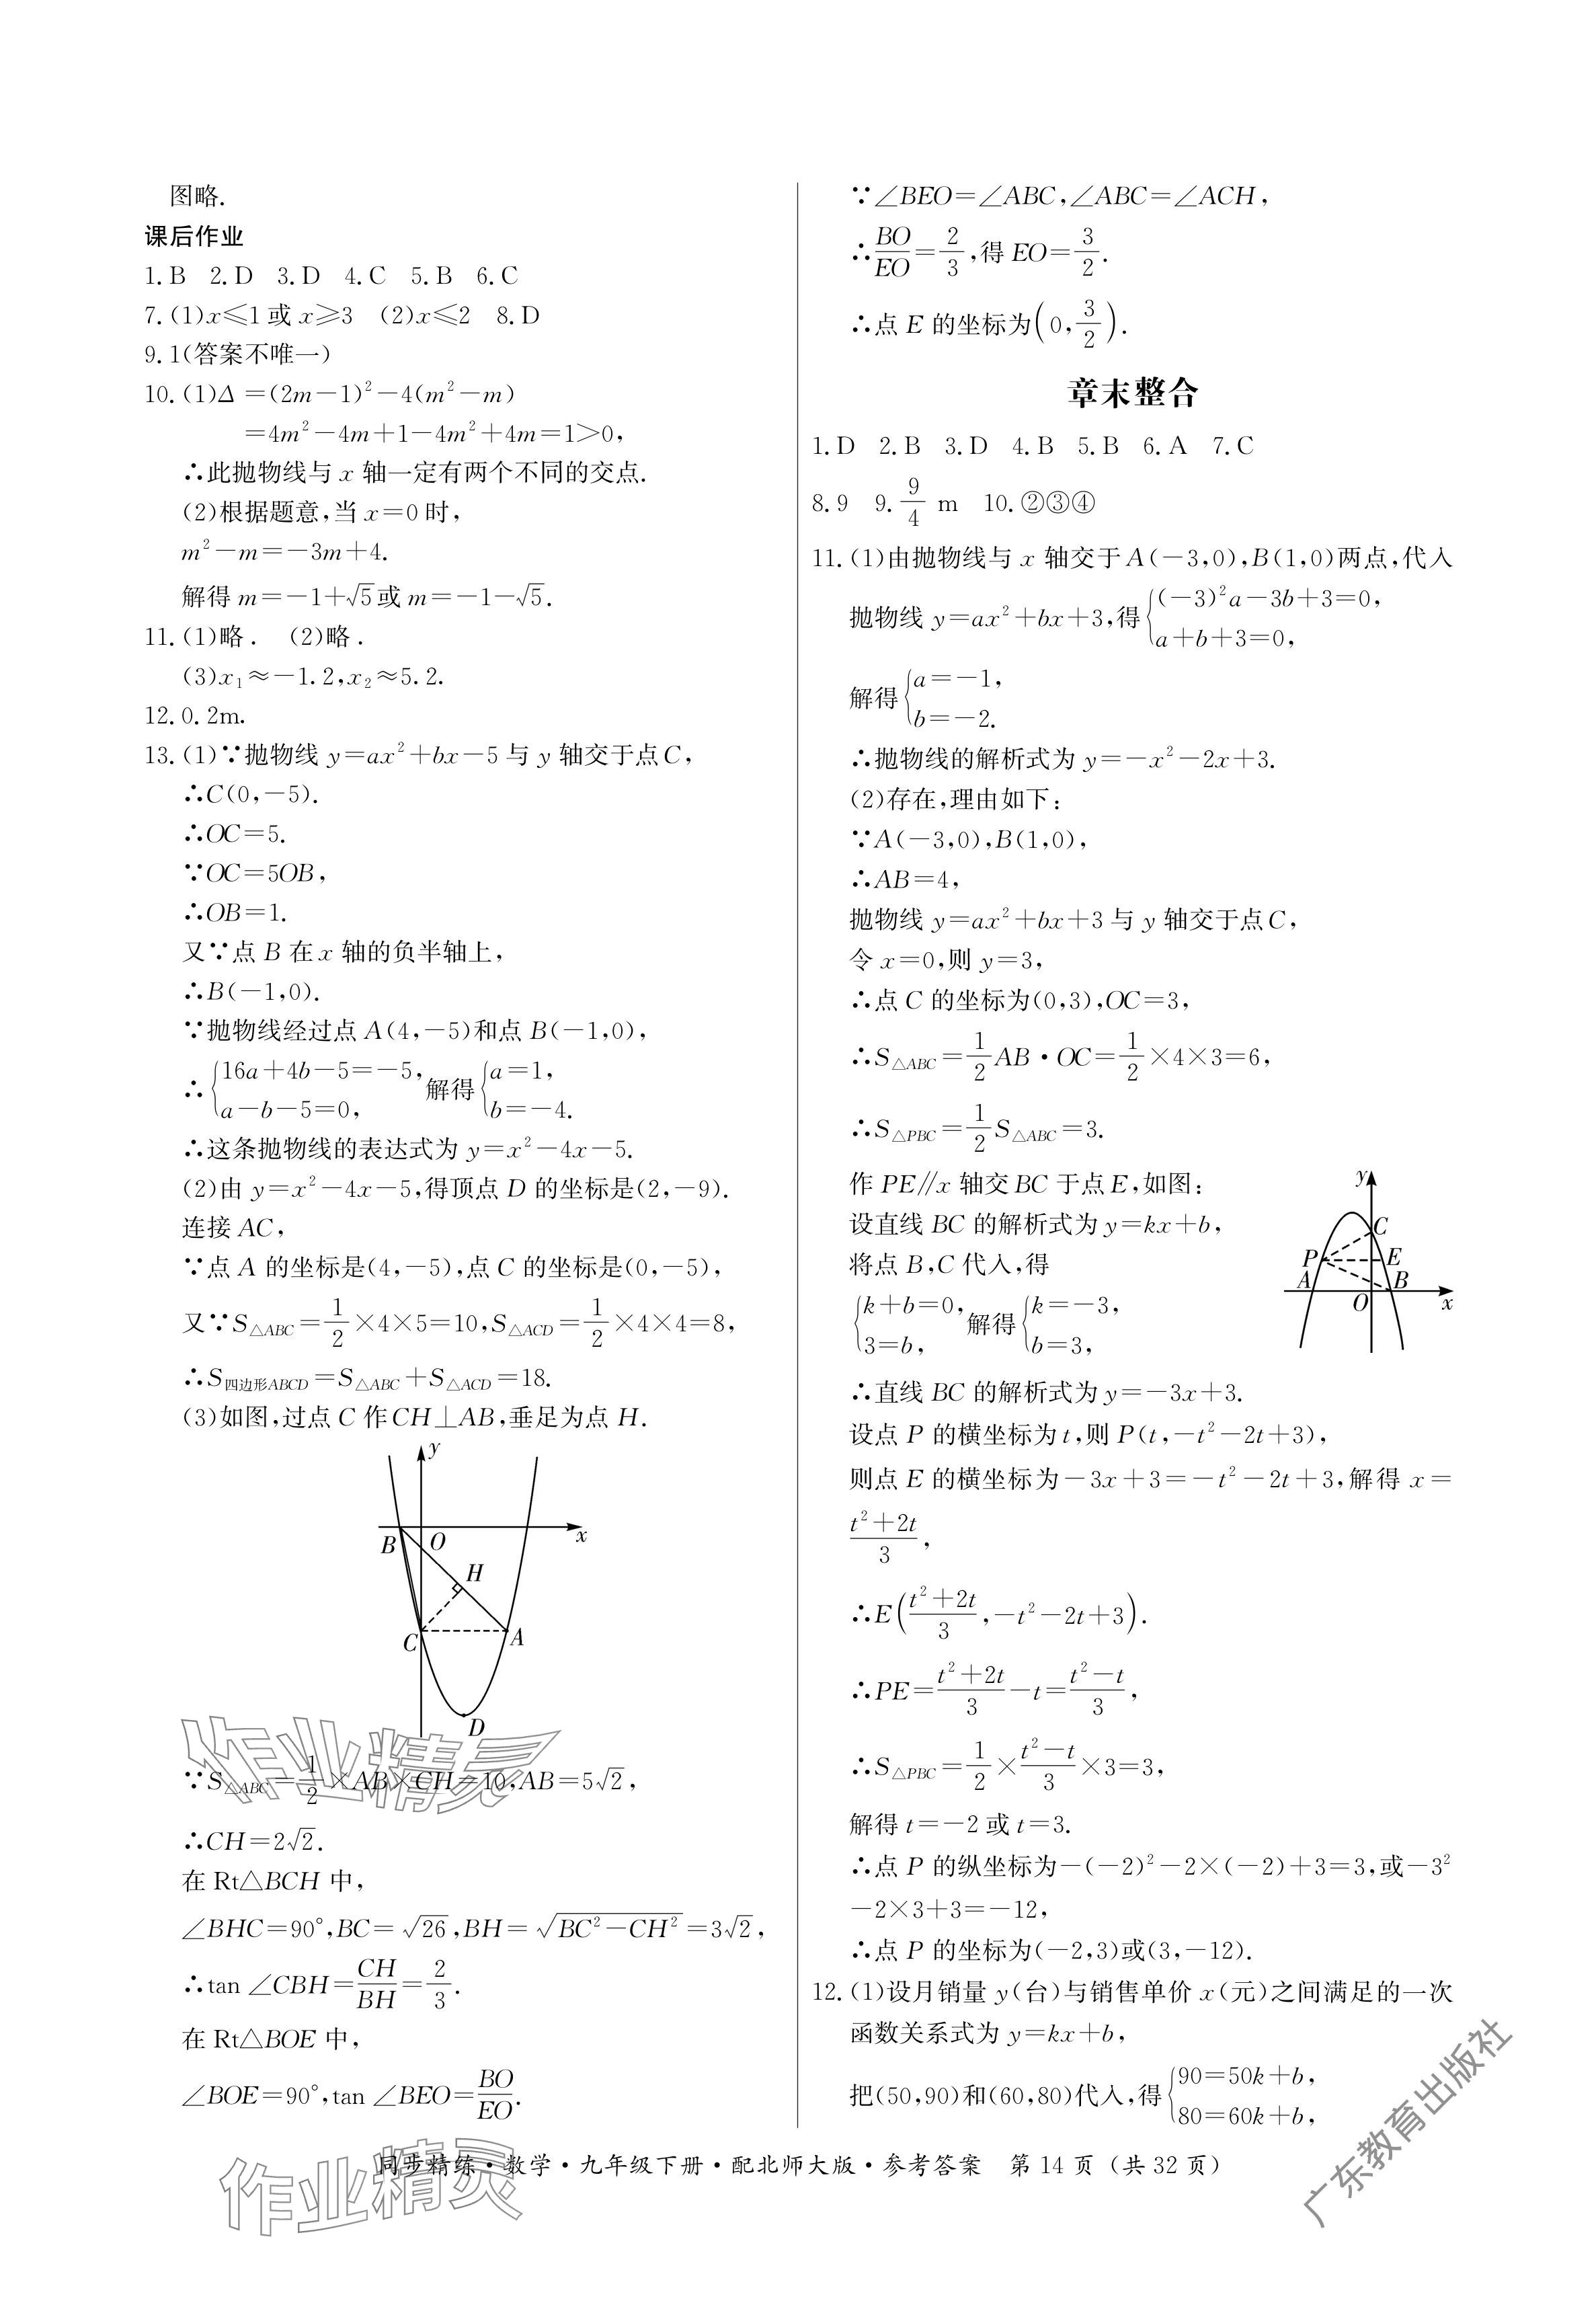 图略.
课后作业
1.B 2.D 3.D 4.C 5.B 6.C
7.(1)x≤1或x≥3 (2)x≤2 8.D
9.1(答案不唯一)
10.(1)Δ=(2m-1)²-4(m²-m)
=4m²-4m+1-4m²+4m=1>0,
∴此抛物线与x轴一定有两个不同的交点.
(2)根据题意,当x=0时,
m²-m=-3m+4.
解得m=-1+√5或m=-1-√5.
11.(1)略. (2)略.
(3)x₁≈-1.2,x₂≈5.2.
12.0.2m.
13.(1)∵抛物线y=ax²+bx-5与y轴交于点C,
∴C(0,-5).
∴OC=5.
∵OC=5OB,
∴OB=1.
又∵点B在x轴的负半轴上,
∴B(-1,0).
∵抛物线经过点A(4,-5)和点B(-1,0),
∴{16a+4b-5=-5, a-b-5=0, 解得{a=1, b=-4.
∴这条抛物线的表达式为y=x²-4x-5.
(2)由y=x²-4x-5,得顶点D的坐标是(2,-9).
连接AC,
∵点A的坐标是(4,-5),点C的坐标是(0,-5),
又∵S△ABC=1/2×4×5=10,S△ACD=1/2×4×4=8,
∴S四边形ABCD=S△ABC+S△ACD=18.
(3)如图,过点C作CH⊥AB,垂足为点H.
y
B O x
H
C A
D
∵S△ABC=1/2×AB×CH=10,AB=5√2,
∴CH=2√2.
在Rt△BCH中,
∠BHC=90°,BC=√26,BH=√(BC²-CH²)=3√2,
∴tan∠CBH=CH/BH=2/3.
在Rt△BOE中,
∠BOE=90°,tan∠BEO=BO/EO.
∵∠BEO=∠ABC,∠ABC=∠ACH,
∴BO/EO=2/3,得EO=3/2.
∴点E的坐标为(0,3/2).
章末整合
1.D 2.B 3.D 4.B 5.B 6.A 7.C
8.9 9.9/4 m 10.②③④
11.(1)由抛物线与x轴交于A(-3,0),B(1,0)两点,代入
抛物线y=ax²+bx+3,得{(-3)²a-3b+3=0, a+b+3=0,
解得{a=-1, b=-2.
∴抛物线的解析式为y=-x²-2x+3.
(2)存在,理由如下:
∵A(-3,0),B(1,0),
∴AB=4,
抛物线y=ax²+bx+3与y轴交于点C,
令x=0,则y=3,
∴点C的坐标为(0,3),OC=3,
∴S△ABC=1/2AB·OC=1/2×4×3=6,
∴S△PBC=1/2S△ABC=3.
作PE∥x轴交BC于点E,如图:
设直线BC的解析式为y=kx+b,
将点B,C代入,得
{k+b=0, 3=b, 解得{k=-3, b=3,
y
C
P E
A B
O x
∴直线BC的解析式为y=-3x+3.
设点P的横坐标为t,则P(t,-t²-2t+3),
则点E的横坐标为-3x+3=-t²-2t+3,解得x=
(t²+2t)/3,
∴E((t²+2t)/3,-t²-2t+3).
∴PE=(t²+2t)/3-t=(t²-t)/3,
∴S△PBC=1/2×(t²-t)/3×3=3,
解得t=-2或t=3.
∴点P的纵坐标为-(-2)²-2×(-2)+3=3,或-3²
-2×3+3=-12,
∴点P的坐标为(-2,3)或(3,-12).
12.(1)设月销量y(台)与销售单价x(元)之间满足的一次
函数关系式为y=kx+b,
把(50,90)和(60,80)代入,得{90=50k+b, 80=60k+b,
同步精练·数学·九年级下册·配北师大版·参考答案 第14页(共32页)
作业精灵
作业精灵
广东教育出版社